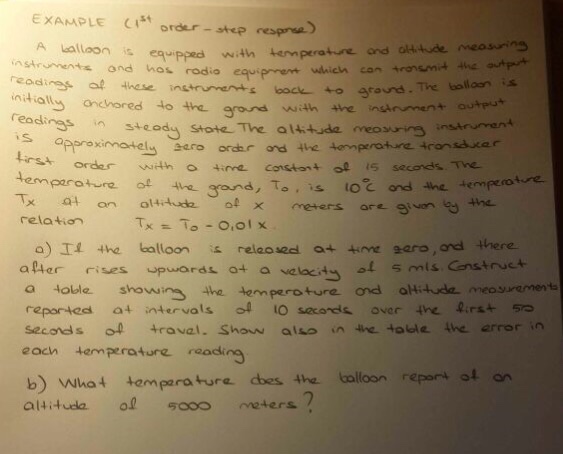 EXAMPLE (1st order - step response)
A balloon is equipped with temperature and altitude measuring
instruments and has radio equipment which can transmit the output
readings of these instruments back to ground. The balloon is
initially anchored to the ground with the instrument output
readings in steady state. The altitude measuring instrument
is approximately zero order and the temperature transducer
first order with a time constant of 15 seconds. The
temperature of the ground, To, is 10°C and the temperature
Tx at an altitude of x meters are given by the
relation Tx = To - 0,01x.
a) If the balloon is released at time zero, and there
after rises upwards at a velocity of 5 m/s. Construct
a table showing the temperature and altitude measurements
reported at intervals of 10 seconds over the first 50
seconds of travel. Show also in the table the error in
each temperature reading.
b) What temperature does the balloon report at an
altitude of 5000 meters?